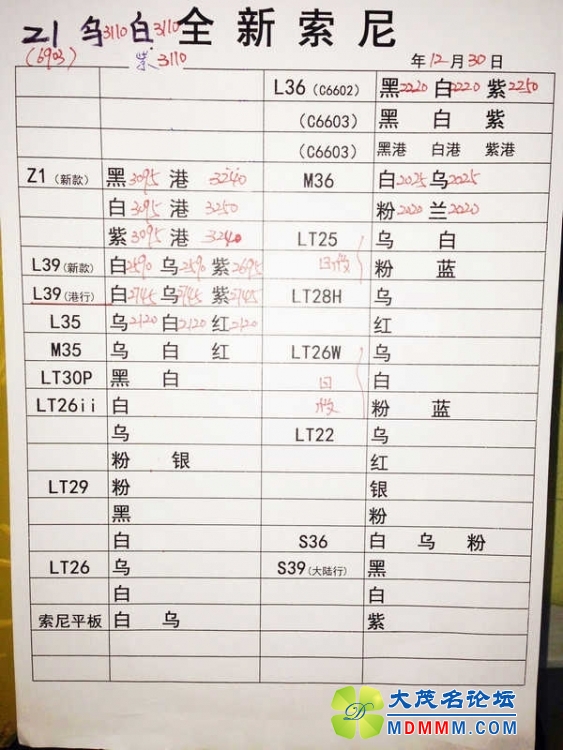 Z1 乌3110 白3110 全新索尼
(6903) 紫3110 年12月30日
L36 (C6602) 黑2220 白2220 紫2250
(C6603) 黑 白 紫
(C6603) 黑港 白港 紫港
Z1 (新款) 黑3095 港 3240 M36 白2025 乌2025
白3095 港 3250 粉2020 兰2020
紫3095 港 3240 LT25 乌 白
L39 (新款) 白2590 乌2590 紫2695 回收 粉 蓝
L39 (港行) 白2745 乌2745 紫2745 LT28H 乌
L35 乌2120 白2120 红2120 红
M35 乌 白 红 LT26W 乌
LT30P 黑 白 回 白
LT26ii 白 收 粉 蓝
乌 LT22 乌
粉 银 红
LT29 粉 银
黑 粉
白 S36 白 乌 粉
LT26 乌 S39 (大陆行) 黑
白 白
索尼平板 白 乌 紫
大茂名论坛
MDMMM.COM